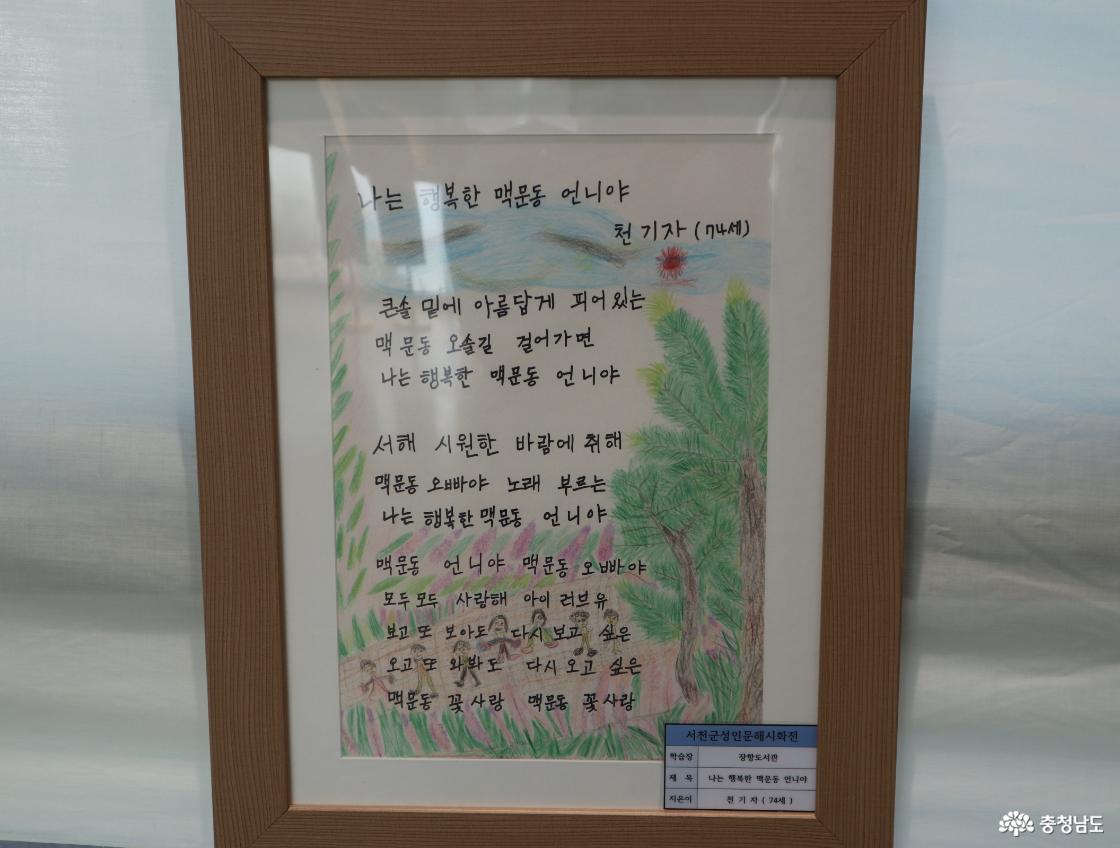 나는 행복한 맥문동 언니야
천기자 (74세)
큰솔 밑에 아름답게 피어있는
맥문동 오솔길 걸어가면
나는 행복한 맥문동 언니야
서해 시원한 바람에 취해
맥문동 오빠야 노래 부르는
나는 행복한 맥문동 언니야
맥문동 언니야 맥문동 오빠야
모두모두 사랑해 아이 러브유
보고 또 보아도 다시 보고 싶은
오고 또 와봐도 다시 오고 싶은
맥문동 꽃사랑 맥문동 꽃사랑
서천군성인문해시화전
학습장 장항도서관
제 목 나는 행복한 맥문동 언니야
지은이 천 기 자 ( 74세 )
충청남도